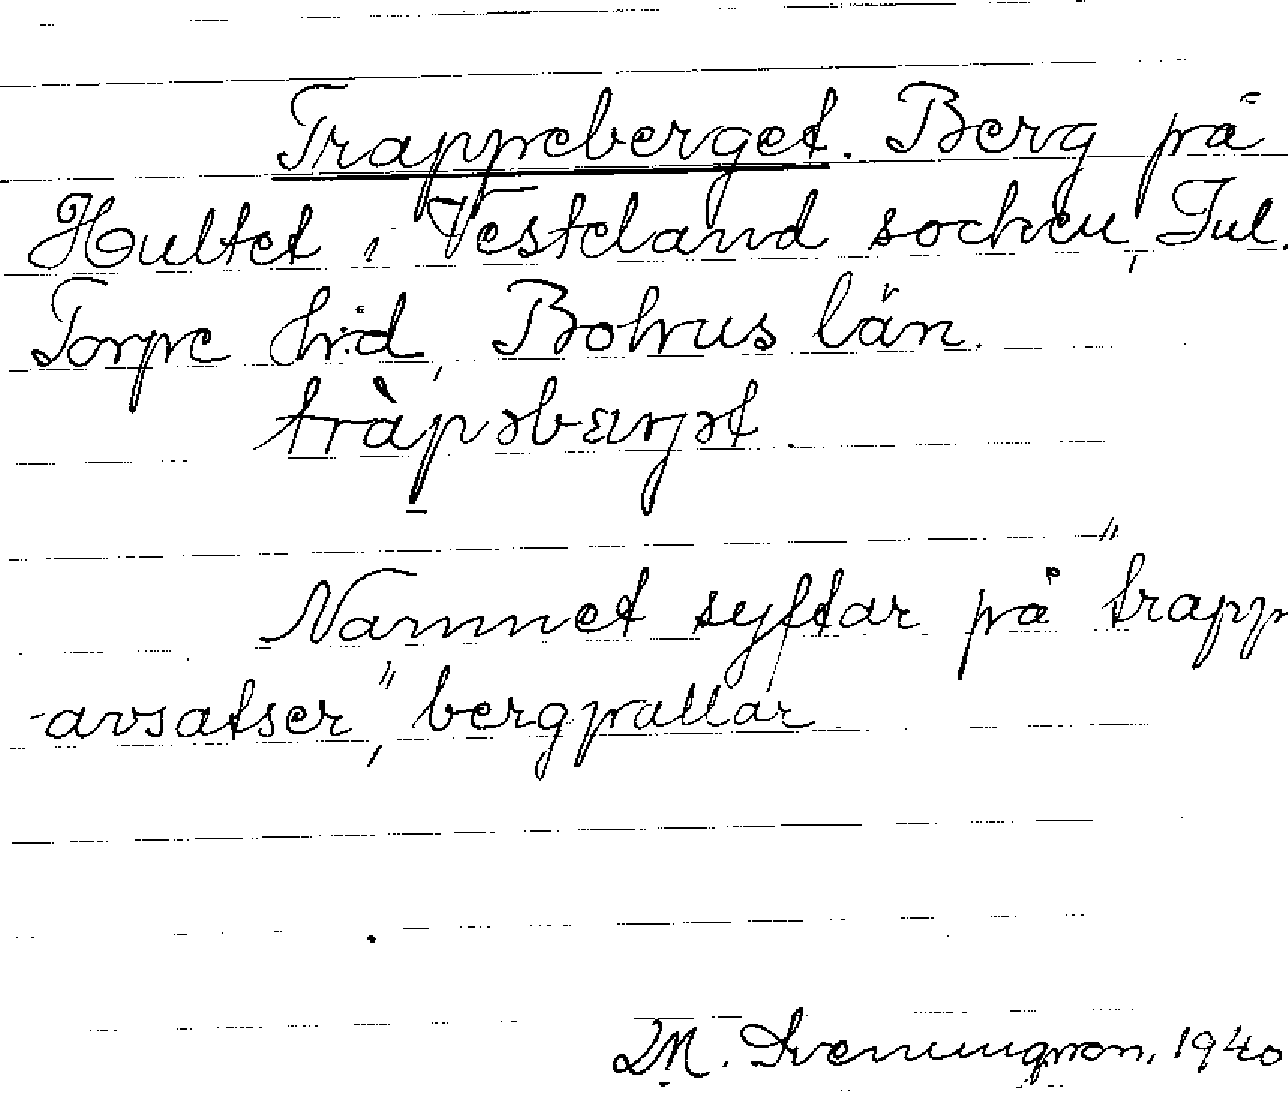 Trappeberget. Berg på
Hultet i Vesteland socken, Inl.
Torpe hrd, Bohus län.
tràpəbærjət.
Namnet syftar på "trapp
-avsatser", bergpallar
M. Sveningson, 1940